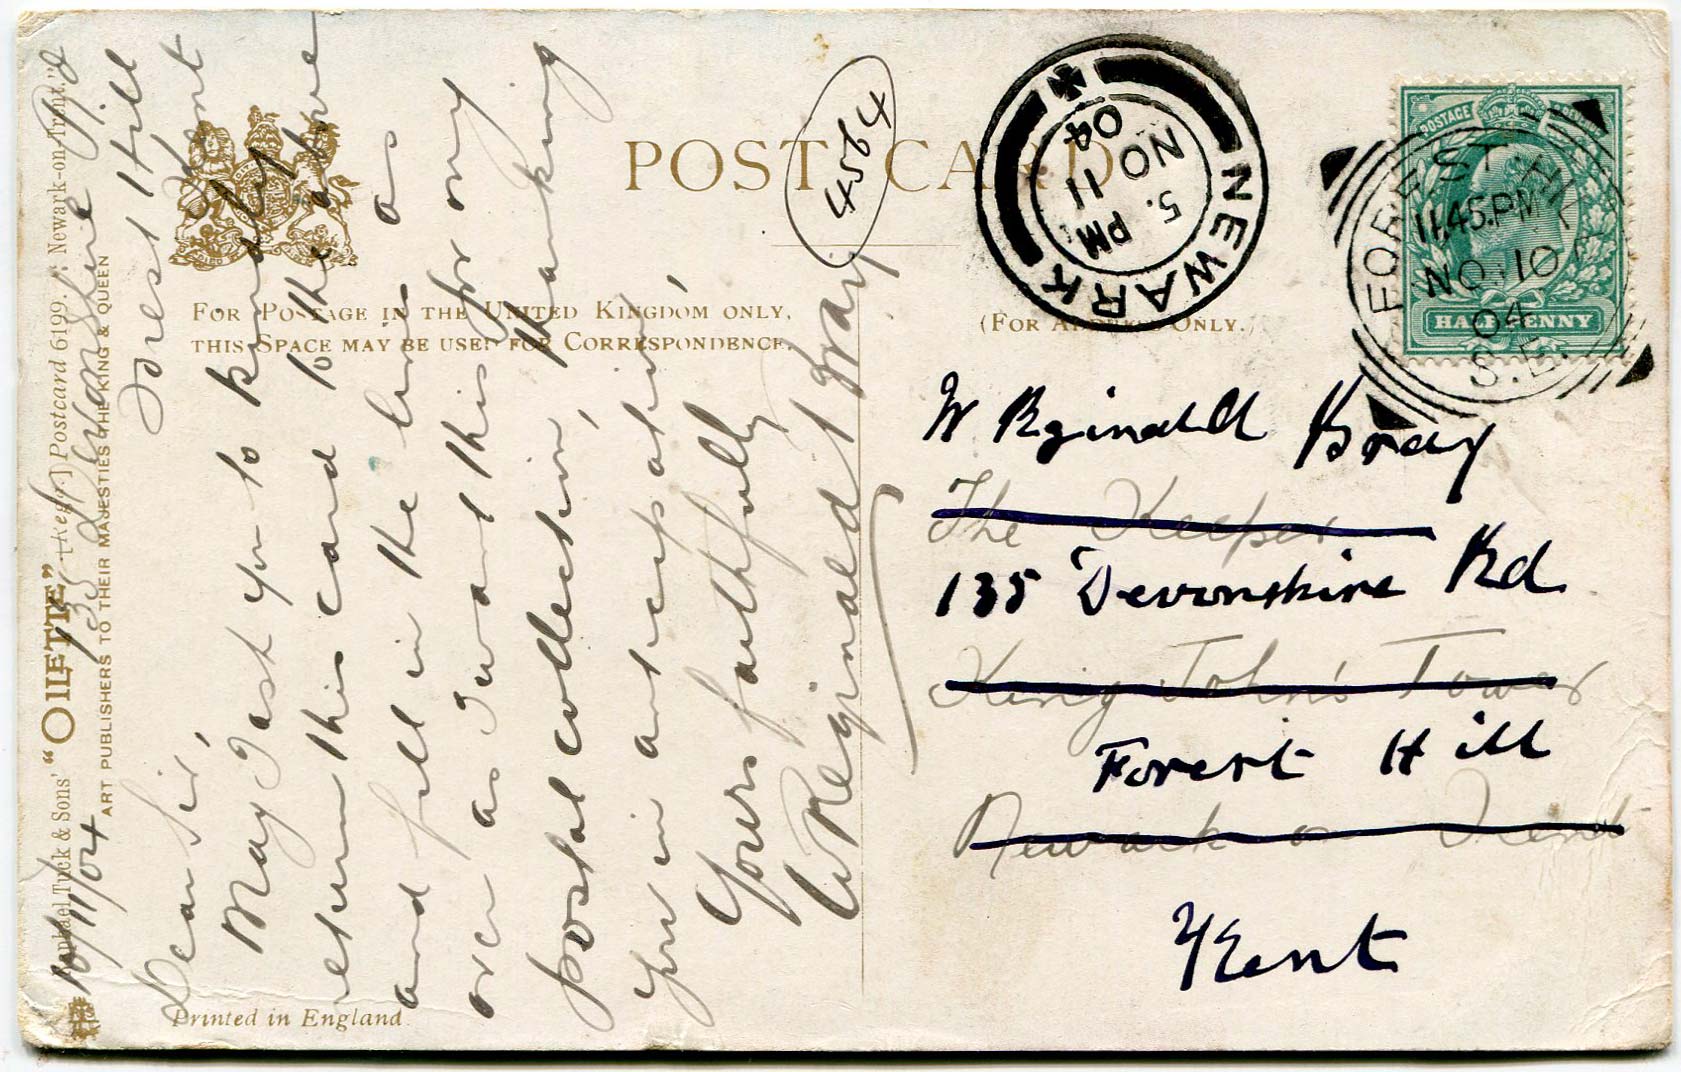 Raphael Tuck & Sons' "OILETTE" [Regd.] Postcard 6199. Newark-on-Trent.
ART PUBLISHERS TO THEIR MAJESTIES THE KING & QUEEN
10/11/04
135 Devonshire Rd
Forest Hill
Kent
Dear Sir,
May I ask you to kindly
return this card to the above
and fill in the lines as
over as I want this for my
postal collection, thanking
you in anticipation,
Yours faithfully
W Reginald Bray
POST CARD
4564
FOR POSTAGE IN THE UNITED KINGDOM ONLY,
THIS SPACE MAY BE USED FOR CORRESPONDENCE.
(FOR ADDRESS ONLY.)
Printed in England
NEWARK
5. PM
NO 11
04
N
POSTAGE
HALFPENNY
FOREST HILL
11.45.PM
NO 10
04
S.E.
W Rginald Bray
The Keeper
135 Devonshire Rd
King John's Tower
Forest Hill
Newark on Trent
Kent